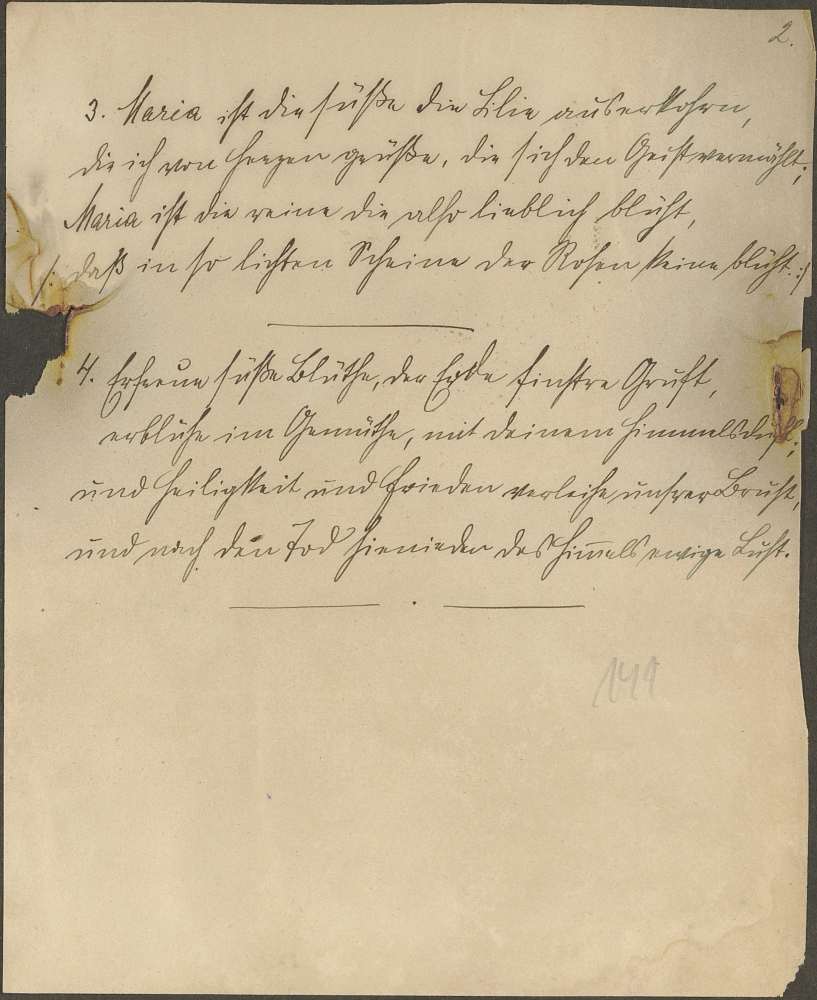 2.
3. Maria ist die süße die Lilie auserkohrn,
die ich von Herzen grüße, die sich den Geist vermählt;
Maria ist die reine die also lieblich blüht,
/: daß in so lichten Scheine der Rosen keine blüht. :/
4. Erfreue süße Blüthe, der Erde finstre Gruft,
erblühe im Gemüthe, mit deinem Himmelsduft;
und Heiligkeit und Frieden verleihe unsrer Brust,
und nach den Tod hienieden des Him̄els ewige Lust.
149